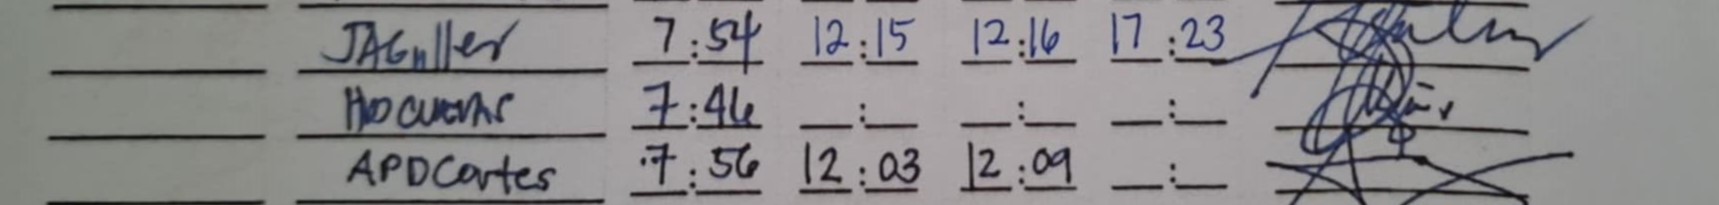 JAGuller 7:54 12:15 12:16 17:23
7:46 : : :
APDCortes 7:56 12:03 12:09 :